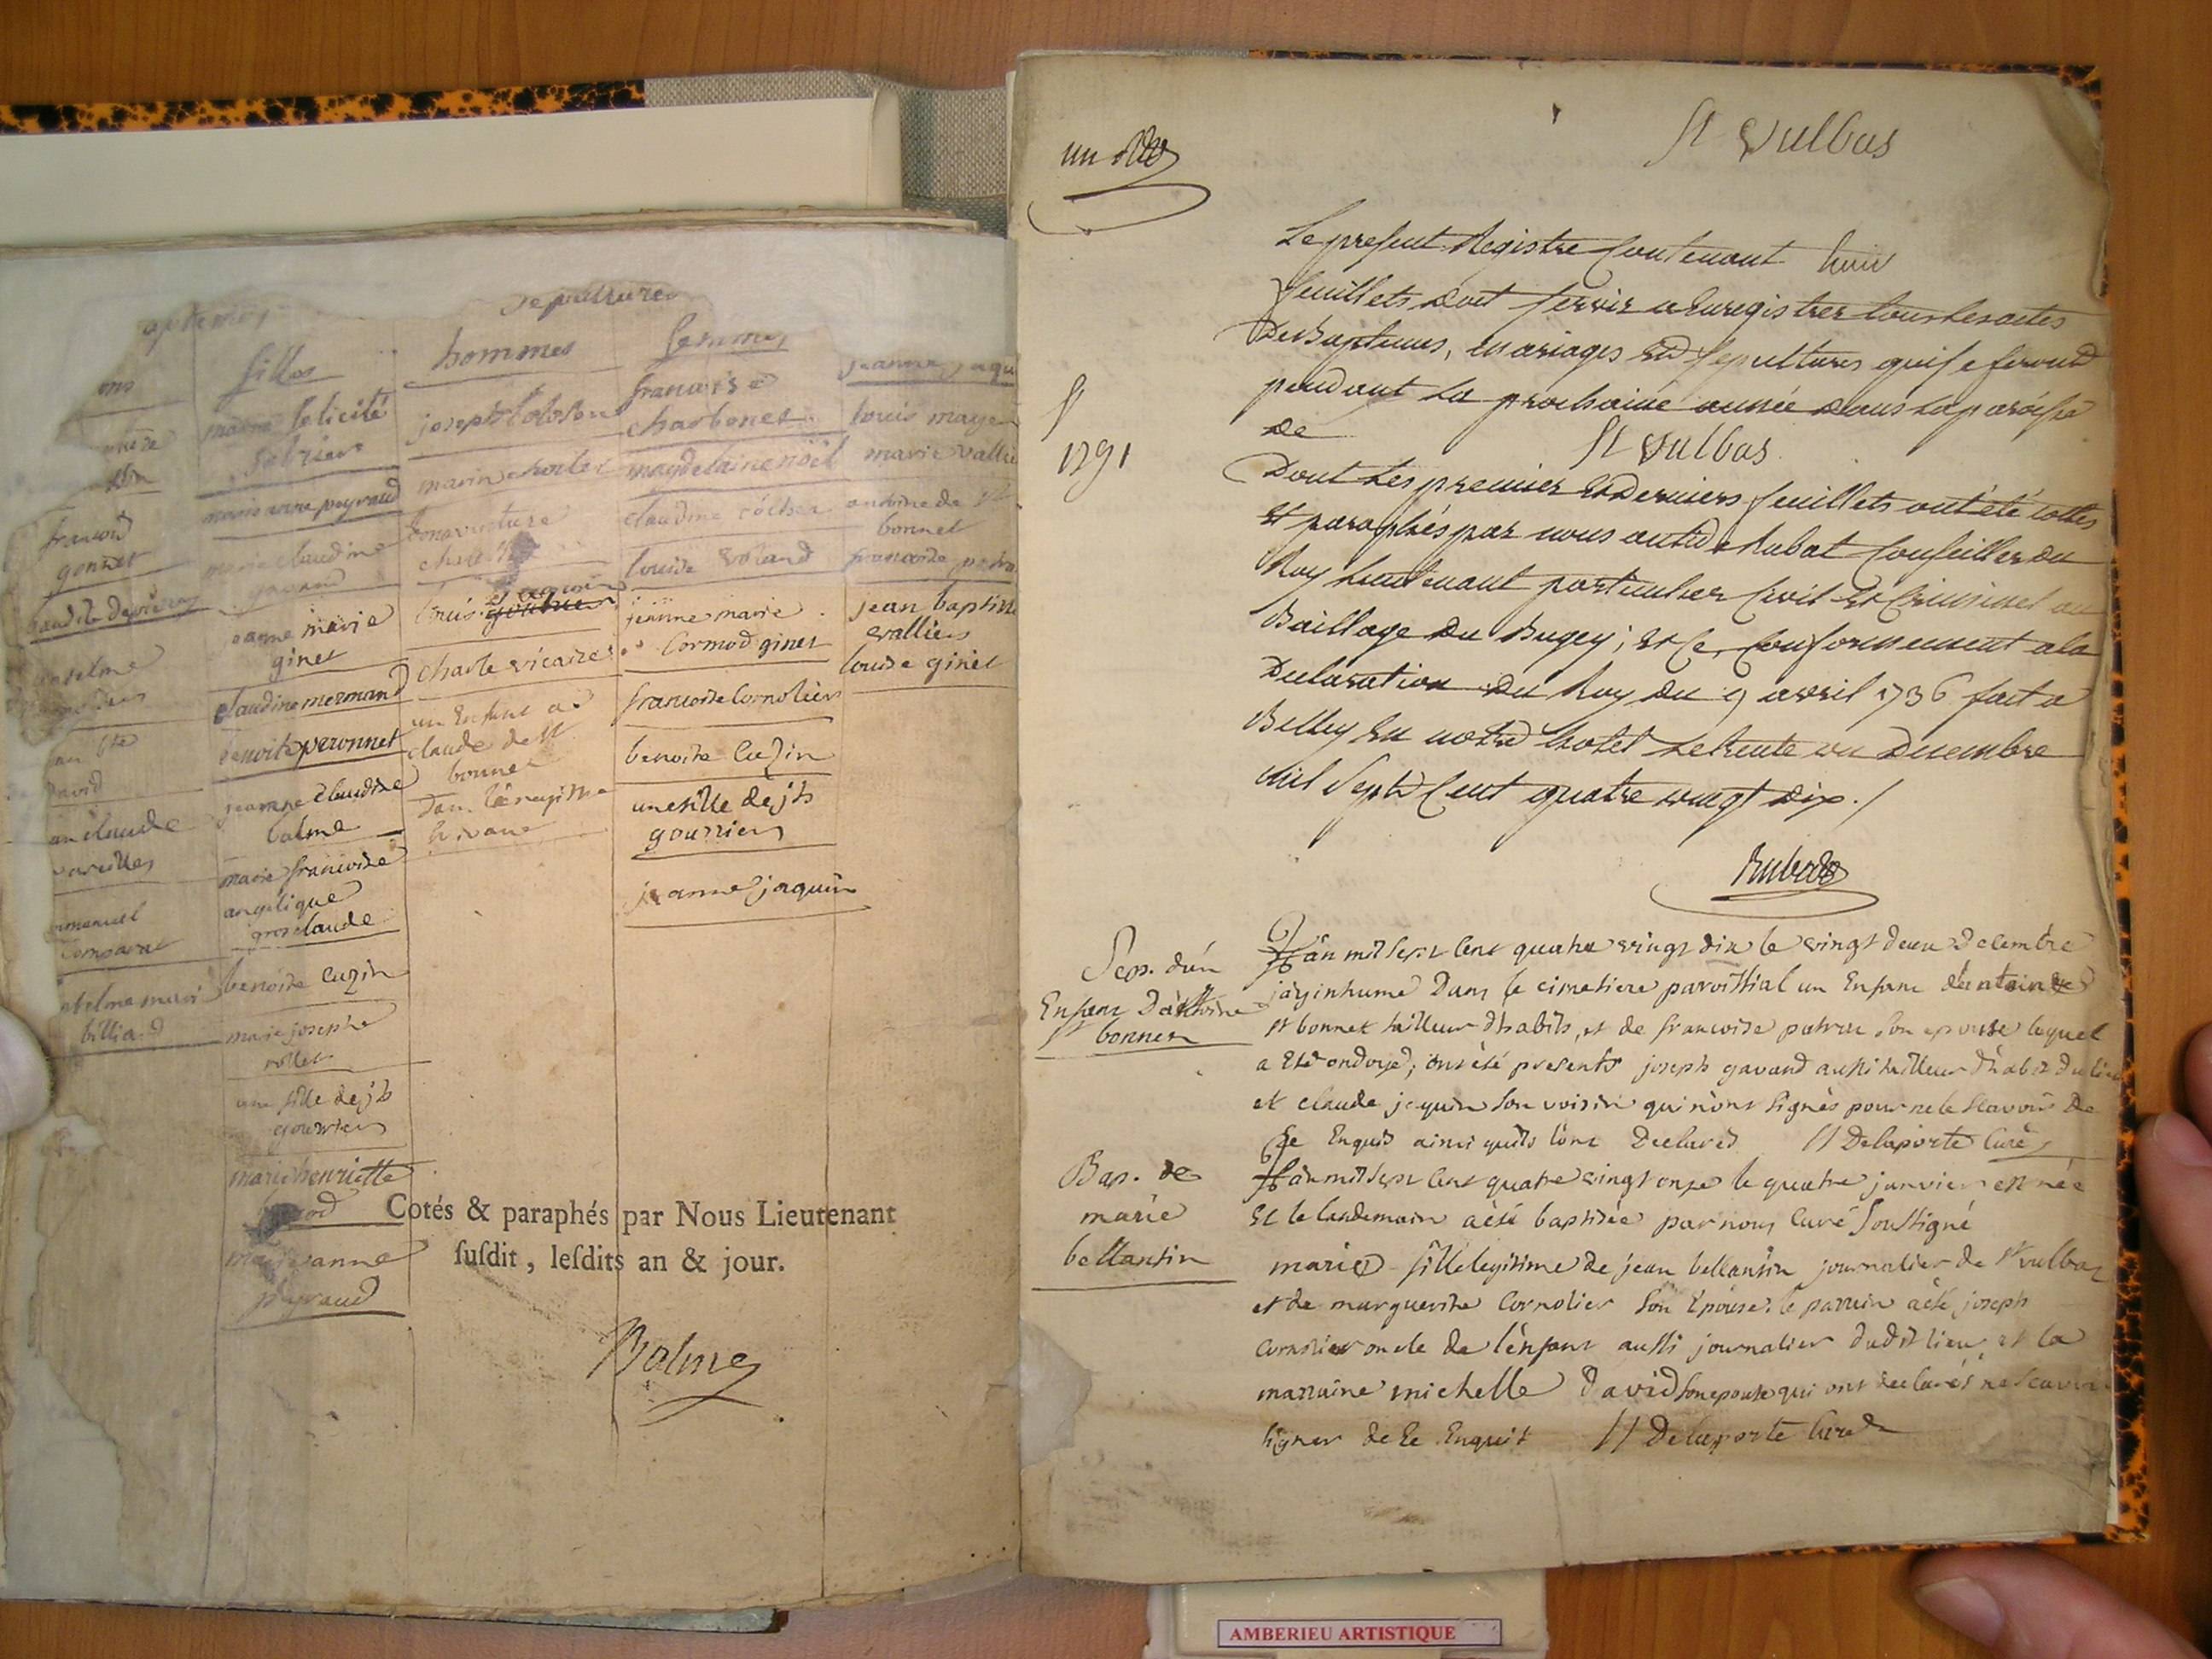 sepultures
filles
marie felicité
marie anne peyraud
marie claudine
jeanne marie
ginet
claudine mermand
benoite peronnet
jeanne claudine
balme
marie francoise
angelique
grosclaude
benoite cuzin
marie josephe
rollet
une fille de jh
gourrier
marie henriette
marie anne
peyraud
francois
gonnet
anselme
david
billiard
hommes
joseph
marin
bonaventure
louis jaquin
charle vicaire
un enfant a
claude de st
bonnet
femmes
francoise
charbonet
magdelaine noël
claudine
louise voland
jeanne marie
cormod ginet
francoise cornolier
benoite cuzin
une fille de jh
gourrier
jeanne jaquin
jeanne jaqu
louis maye
marie vallie
antoine de st
bonnet
francoise
jean baptiste
vallier
louise ginet
Cotés & paraphés par Nous Lieutenant
susdit, lesdits an & jour.
Balme
un
St Vulbas
Le present Registre Contenant huit
feuillets doit servir a Enregistrer tous les actes
De Baptemes, mariages et sepultures qui se feront
pendant La prochaine année dans la paroisse
de St Vulbas
1791
Dont Les premier et Derniers feuillets ont été cottés
et paraphés par nous Rubat Conseiller du
Roy Lieutenant particulier Civil et Criminel au
Bailliage du Bugey; et Ce, Conformement a la
Declaration du Roy du 9 avril 1736 fait a
Belley En notre hotel Le trente un Decembre
mil Sept Cent quatre vingt dix./
Rubat
Sep. d'un
Enfant d'antoine
st bonnet
L'an mil sept cent quatre vingt dix le vingt deux decembre
j'ay inhumé dans le cimetiere paroissial un Enfant d'antoine de
st bonnet tailleur d'habits, et de francoise son epouse lequel
a Eté ondoyé; ont été presents joseph gavand aussi tailleur d'habit du lieu
et claude jaquin son voisin qui n'ont signés pour ne le scavoir de
Ce Enquis ainsi qu'ils l'ont declarés Delaporte Curé
Bap. de
marie
bellantin
L'an mil sept cent quatre vingt onze le quatre janvier est née
Et le landemain a été baptisée par nous Curé soussigné
marie fille legitime de jean bellantin journalier de st vulbas
et de marguerite cornolier son Epouse. le parrin a été joseph
cornolier oncle de l'enfant aussi journalier dudit lieu et la
marraine michelle david son epouse qui ont declarés ne scavoir
signer de Ce Enquit Delaporte Curé
AMBERIEU ARTISTIQUE